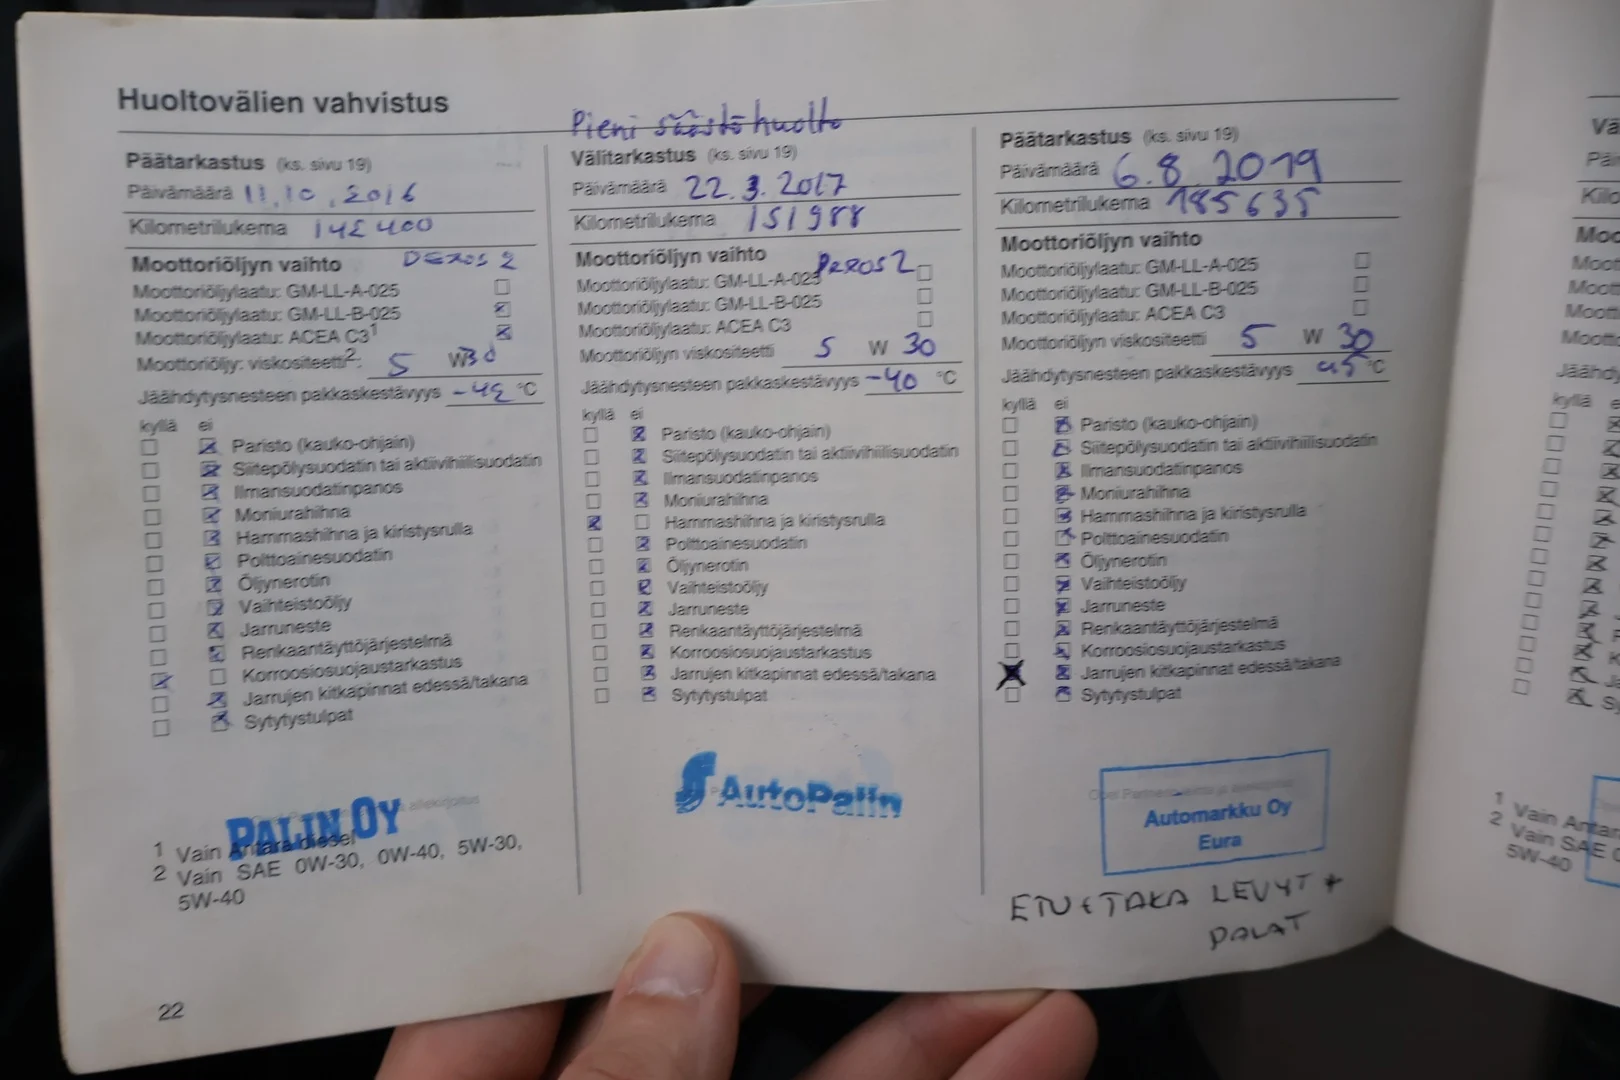 Huoltovälien vahvistus
Päätarkastus (ks. sivu 19)
Päivämäärä 11.10.2016
Kilometrilukema 142400
Moottoriöljyn vaihto DEXOS 2
Moottoriöljylaatu: GM-LL-A-025
Moottoriöljylaatu: GM-LL-B-025
Moottoriöljylaatu: ACEA C3¹
Moottoriöljy: viskositeetti²: 5 W 30
Jäähdytysnesteen pakkaskestävyys -42 °C
kyllä ei
Paristo (kauko-ohjain)
Siitepölysuodatin tai aktiivihiilisuodatin
Ilmansuodatinpanos
Moniurahihna
Hammashihna ja kiristysrulla
Polttoainesuodatin
Öljynerotin
Vaihteistoöljy
Jarruneste
Renkaantäyttöjärjestelmä
Korroosiosuojaustarkastus
Jarrujen kitkapinnat edessä/takana
Sytytystulpat
PALIN OY
1 Vain Antara diesel
2 Vain SAE 0W-30, 0W-40, 5W-30,
5W-40
22
Pieni säästö huolto
Välitarkastus (ks. sivu 19)
Päivämäärä 22.3.2017
Kilometrilukema 151988
Moottoriöljyn vaihto
Moottoriöljylaatu: GM-LL-A-025
Moottoriöljylaatu: GM-LL-B-025
Moottoriöljylaatu: ACEA C3
Moottoriöljyn viskositeetti 5 W 30
Jäähdytysnesteen pakkaskestävyys -40 °C
kyllä ei
Paristo (kauko-ohjain)
Siitepölysuodatin tai aktiivihiilisuodatin
Ilmansuodatinpanos
Moniurahihna
Hammashihna ja kiristysrulla
Polttoainesuodatin
Öljynerotin
Vaihteistoöljy
Jarruneste
Renkaantäyttöjärjestelmä
Korroosiosuojaustarkastus
Jarrujen kitkapinnat edessä/takana
Sytytystulpat
AutoPalin
Päätarkastus (ks. sivu 19)
Päivämäärä 6.8.2019
Kilometrilukema 185635
Moottoriöljyn vaihto
Moottoriöljylaatu: GM-LL-A-025
Moottoriöljylaatu: GM-LL-B-025
Moottoriöljylaatu: ACEA C3
Moottoriöljyn viskositeetti 5 W 30
Jäähdytysnesteen pakkaskestävyys 45 °C
kyllä ei
Paristo (kauko-ohjain)
Siitepölysuodatin tai aktiivihiilisuodatin
Ilmansuodatinpanos
Moniurahihna
Hammashihna ja kiristysrulla
Polttoainesuodatin
Öljynerotin
Vaihteistoöljy
Jarruneste
Renkaantäyttöjärjestelmä
Korroosiosuojaustarkastus
Jarrujen kitkapinnat edessä/takana
Sytytystulpat
Automarkku Oy
Eura
ETU &TAKA LEVYT +
PALAT
kyllä
1 Vain
2 Vain SAE
5W-40